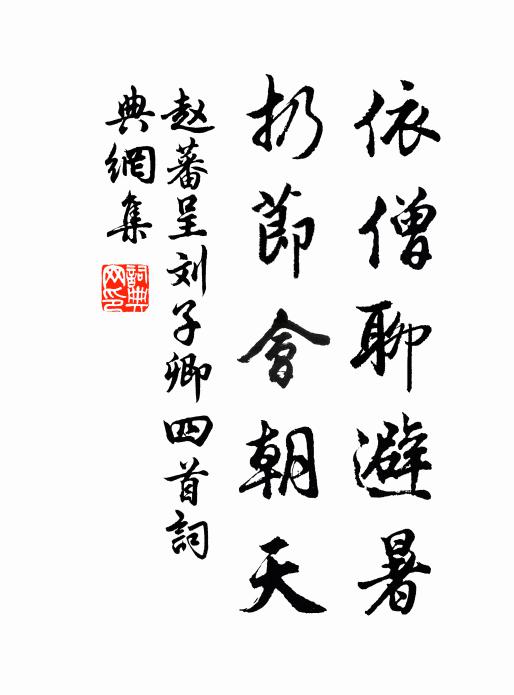 依僧聊避暑
扔節會朝天
赵蕃呈刘子卿四首詞
典網集
詞典
网印